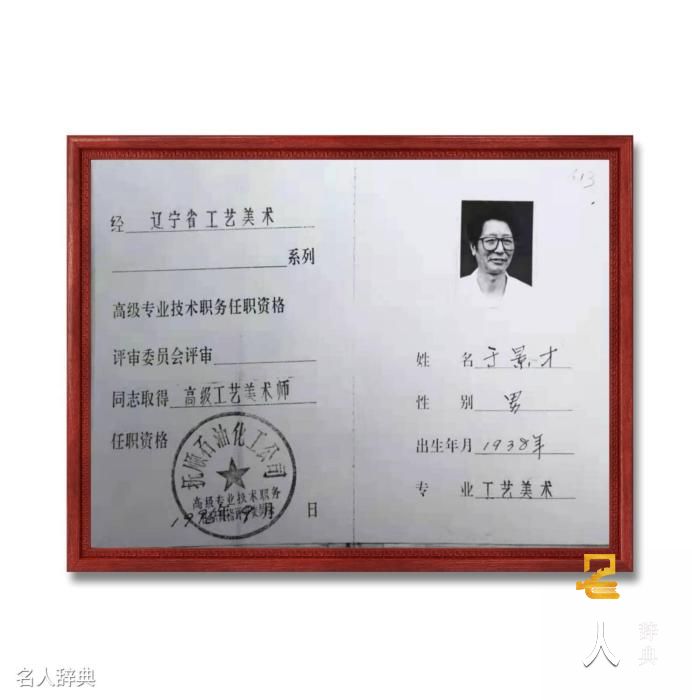 经 辽宁省工艺美术
系列
高级专业技术职务任职资格
评审委员会评审
同志取得 高级工艺美术师
任职资格
抚顺石油化工公司
高级专业技术职务
年9月 日
613
姓 名 于景才
性 别 男
出生年月 1938年
专 业 工艺美术
名人辞典
人
辞典